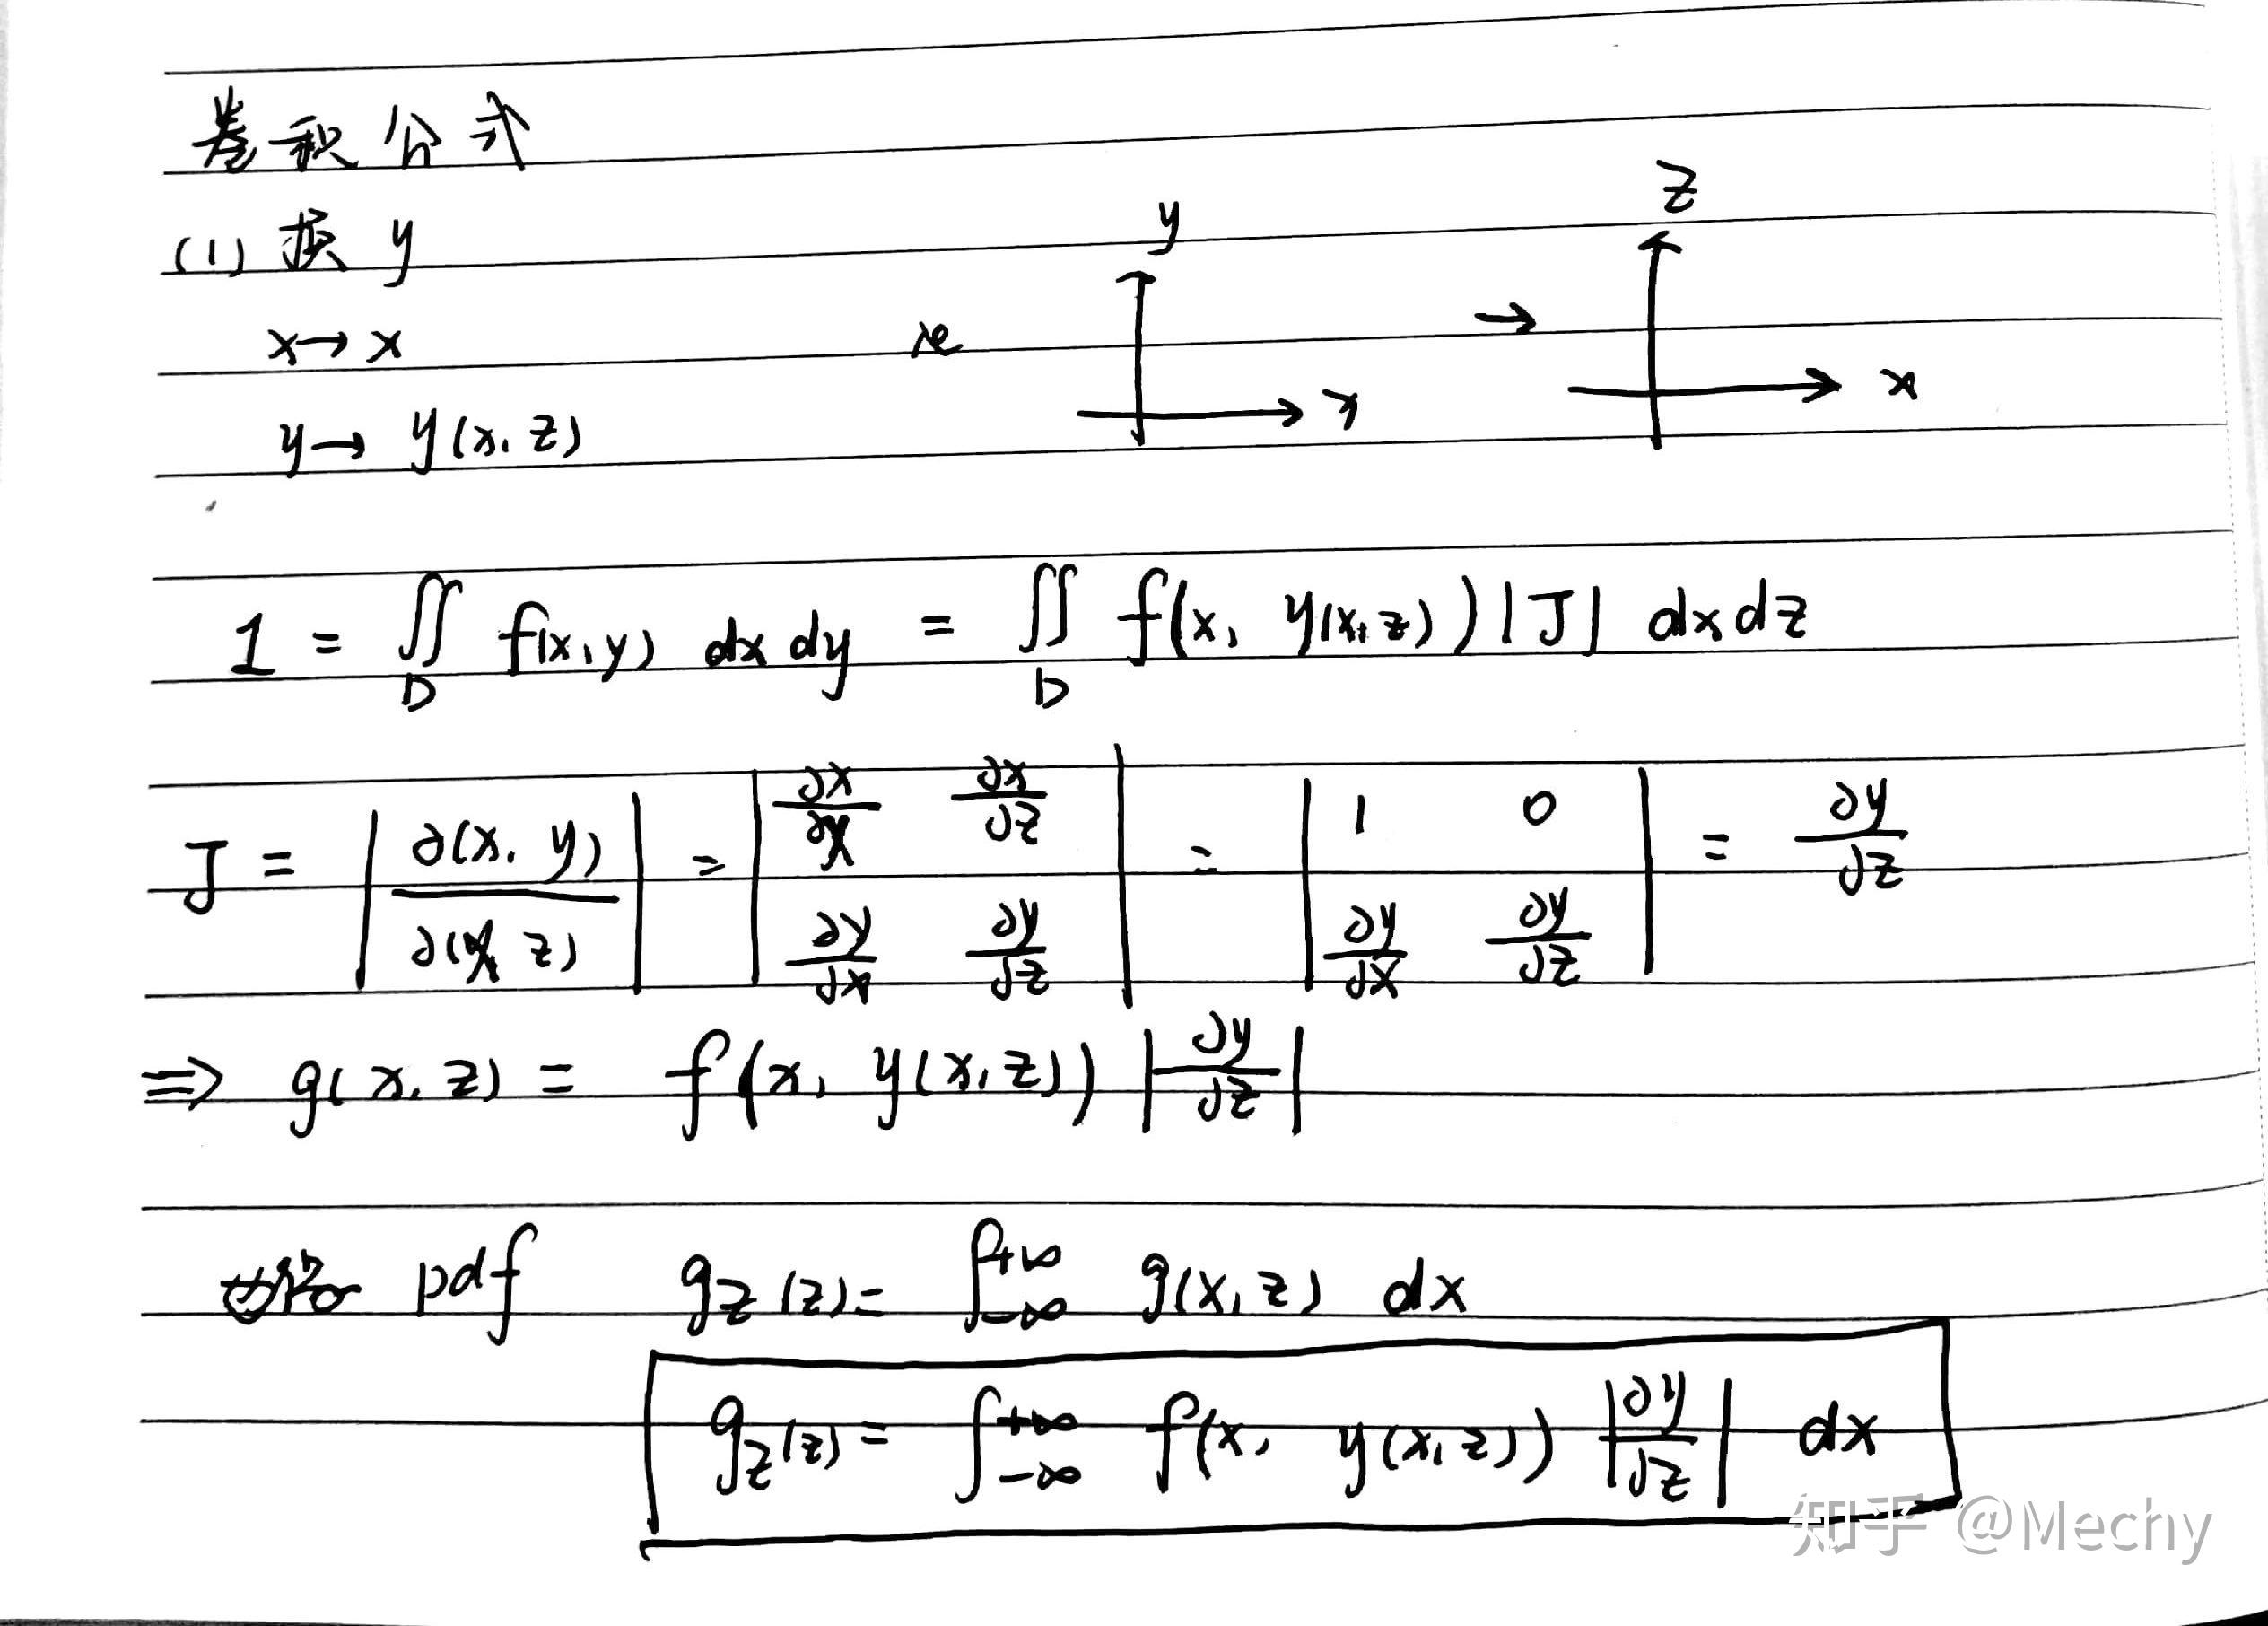 卷积公式
(1) 换 y
y z
x→x → x
y→y(x,z) x
1 = ∬_D f(x,y) dxdy = ∬_D f(x, y(x,z)) |J| dxdz
J = |∂(x,y)/∂(x,z)| = |∂x/∂x ∂x/∂z; ∂y/∂x ∂y/∂z| = |1 0; ∂y/∂x ∂y/∂z| = ∂y/∂z
⇒ g(x,z) = f(x, y(x,z)) |∂y/∂z|
pdf g_Z(z) = ∫_{-∞}^{+∞} g(x,z) dx
g_Z(z) = ∫_{-∞}^{+∞} f(x, y(x,z)) |∂y/∂z| dx
知乎 @Mechy